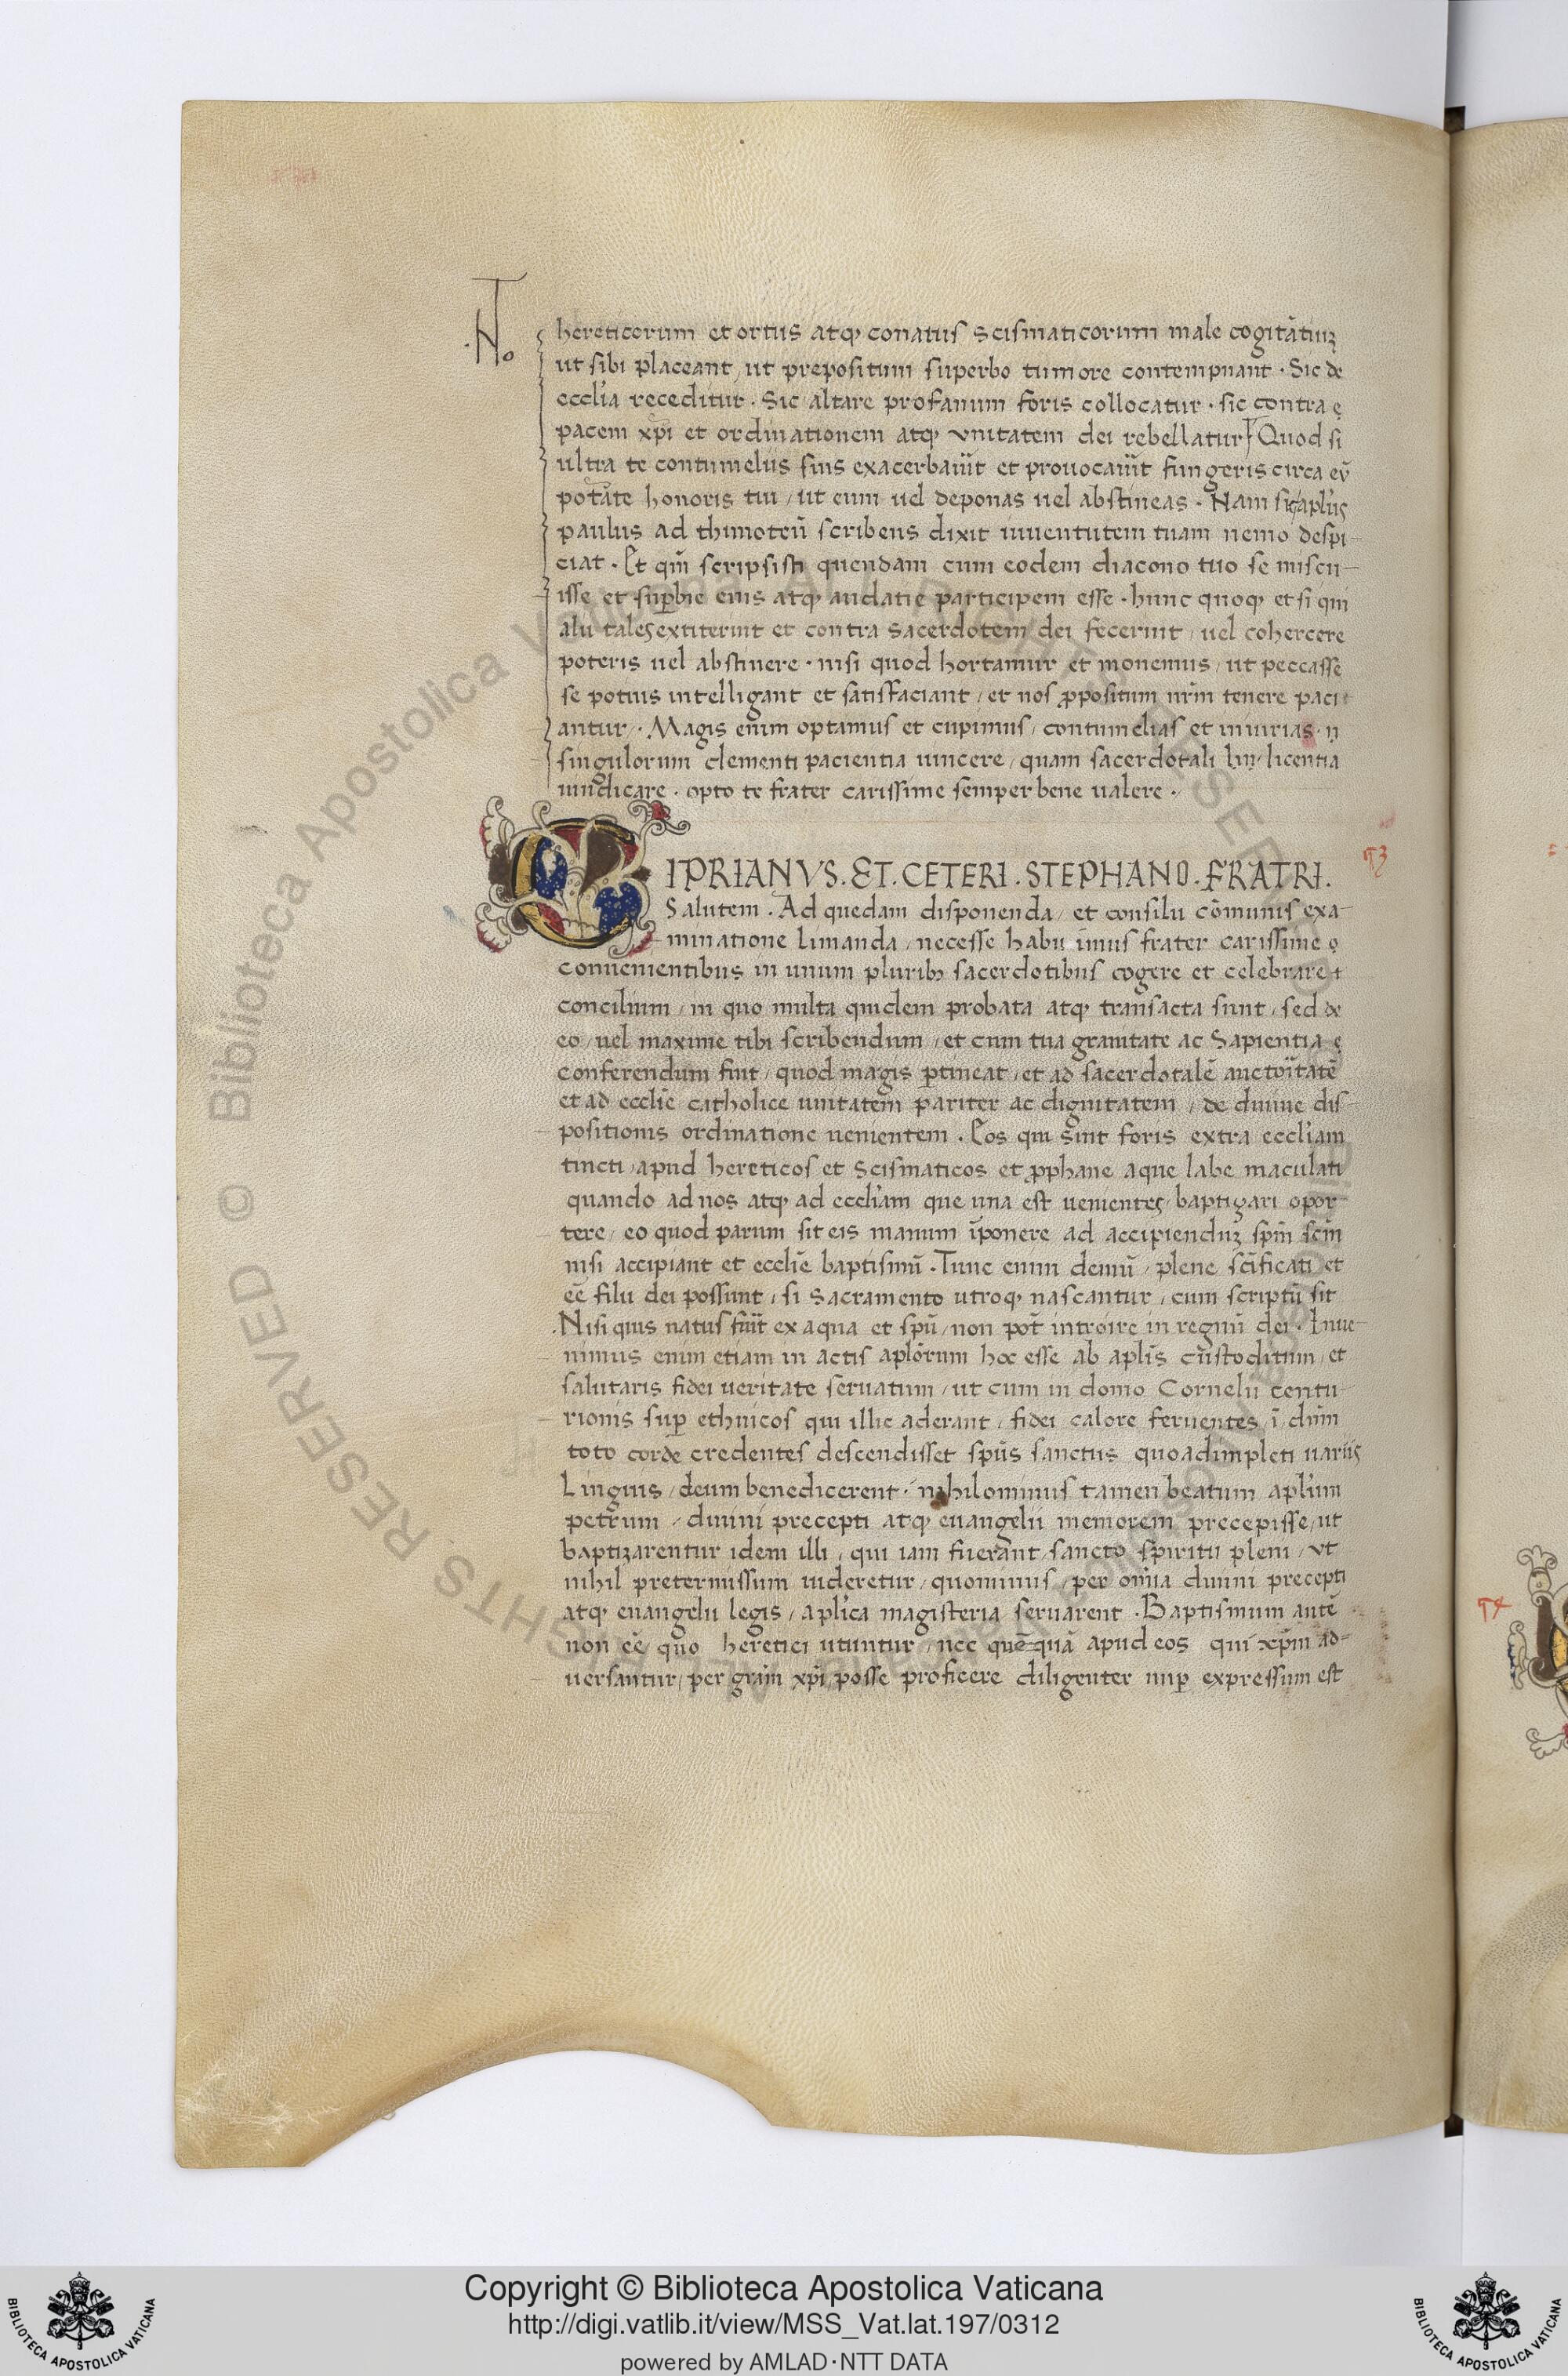 hereticorum et ortus atqꝫ conatus scismaticorum male cogitātiuꝫ
ut sibi placeant / ut prepositum superbo tumore contempnant · Sic de
eccl'ia receditur · Sic altare profanum foris collocatur · sic contra e
pacem xp̄i et ordinationem atqꝫ vnitatem dei rebellatur Quod si
ultra te contumeliis suis exacerbauīt et prouocauīt fungeris circa eū
potāte honoris tui / ut eum uel deponas uel abstineas · Nam si apl'us
paulus ad thimoteū scribens dixit iuuentutem tuam nemo despi-
ciat · Et qm̄ scripsisti quendam cum eodem diacono tuo se miscu-
isse et sup̄bie eius atqꝫ audatie participem esse · hunc quoqꝫ et si qui
alii tales extiterint et contra Sacerdotem dei fecerint / uel cohercere
poteris uel abstinere · nisi quod hortamur et monemus / ut peccasse
se potius intelligant et satisfaciant / et nos ꝓpositum nr̄m tenere paci
antur / · Magis enim optamus et cupimus / contumelias et iniurias · n
singulorum clementi pacientia uincere / quam sacerdotali licentia
uindicare · opto te frater carissime semper bene ualere ·
CIPRIANVS . ET . CETERI . STEPHANO . FRATRI .
¶3
Salutem . Ad quedam disponenda / et consilii cōmunis exa-
minatione limanda / necesse habuimus frater carissime o
conuenientibus in unum pluribꝫ sacerdotibus cogere et celebrare t
concilium / in quo multa quidem probata atqꝫ transacta sunt / sed de
eo / uel maxime tibi scribendum / et cum tua grauitate ac Sapientia e
conferendum fuit / quod magis ꝑtineat / et ad sacerdotalē auctoītatē
et ad ecclīe catholice unitatem pariter ac dignitatem / de diuine dis-
positionis ordinatione uenientem . Eos qui sint foris extra eccl'iam
tincti / apud hereticos et Scismaticos et ꝓphane aque labe maculati
quando ad nos atqꝫ ad eccl'iam que una est uenientes / baptizari opor-
tere / eo quod parum sit eis manum īponere ad accipienduꝫ spm̄ scm̄
nisi accipiant et ecclīe baptismū . Tunc enim demū / plene scīficati et
eē filii dei possunt / si Sacramento utroqꝫ nascantur / cum scriptū sit
Nisi quis natus fuīt ex aqua et spū / non pot̄ introire in regnū dei · Inue-
nimus enim etiam in actis aplōrum hoc esse ab aplīs custoditum / et
salutaris fidei ueritate seruatum / ut cum in domo Cornelii centu-
rionis sup̄ ethnicos qui illic aderant / fidei calore feruentes / ī dn̄m
toto corde credentes descendisset spūs sanctus quo adimpleti uariis
Linguis / deum benedicerent · nihilominus tamen beatum apl'um
petrum / diuini precepti atqꝫ euangelii memorem precepisse / ut
baptizarentur idem illi / qui iam fuerant / sancto spiritu pleni / vt
nihil pretermissum uideretur / quominus / per omīa diuini precepti
atqꝫ euangelii legis / apl'ica magisteria seruarent . Baptismum autē
non eē / quo heretici utuntur / nec quēquā apud eos qui xp̄m ad-
uersantur / per gram̄ xp̄i posse proficere diligenter nup̄ expressum est
¶4
Copyright © Biblioteca Apostolica Vaticana
http://digi.vatlib.it/view/MSS_Vat.lat.197/0312
powered by AMLAD·NTT DATA
BIBLIOTECA APOSTOLICA VATICANA
BIBLIOTECA APOSTOLICA VATICANA